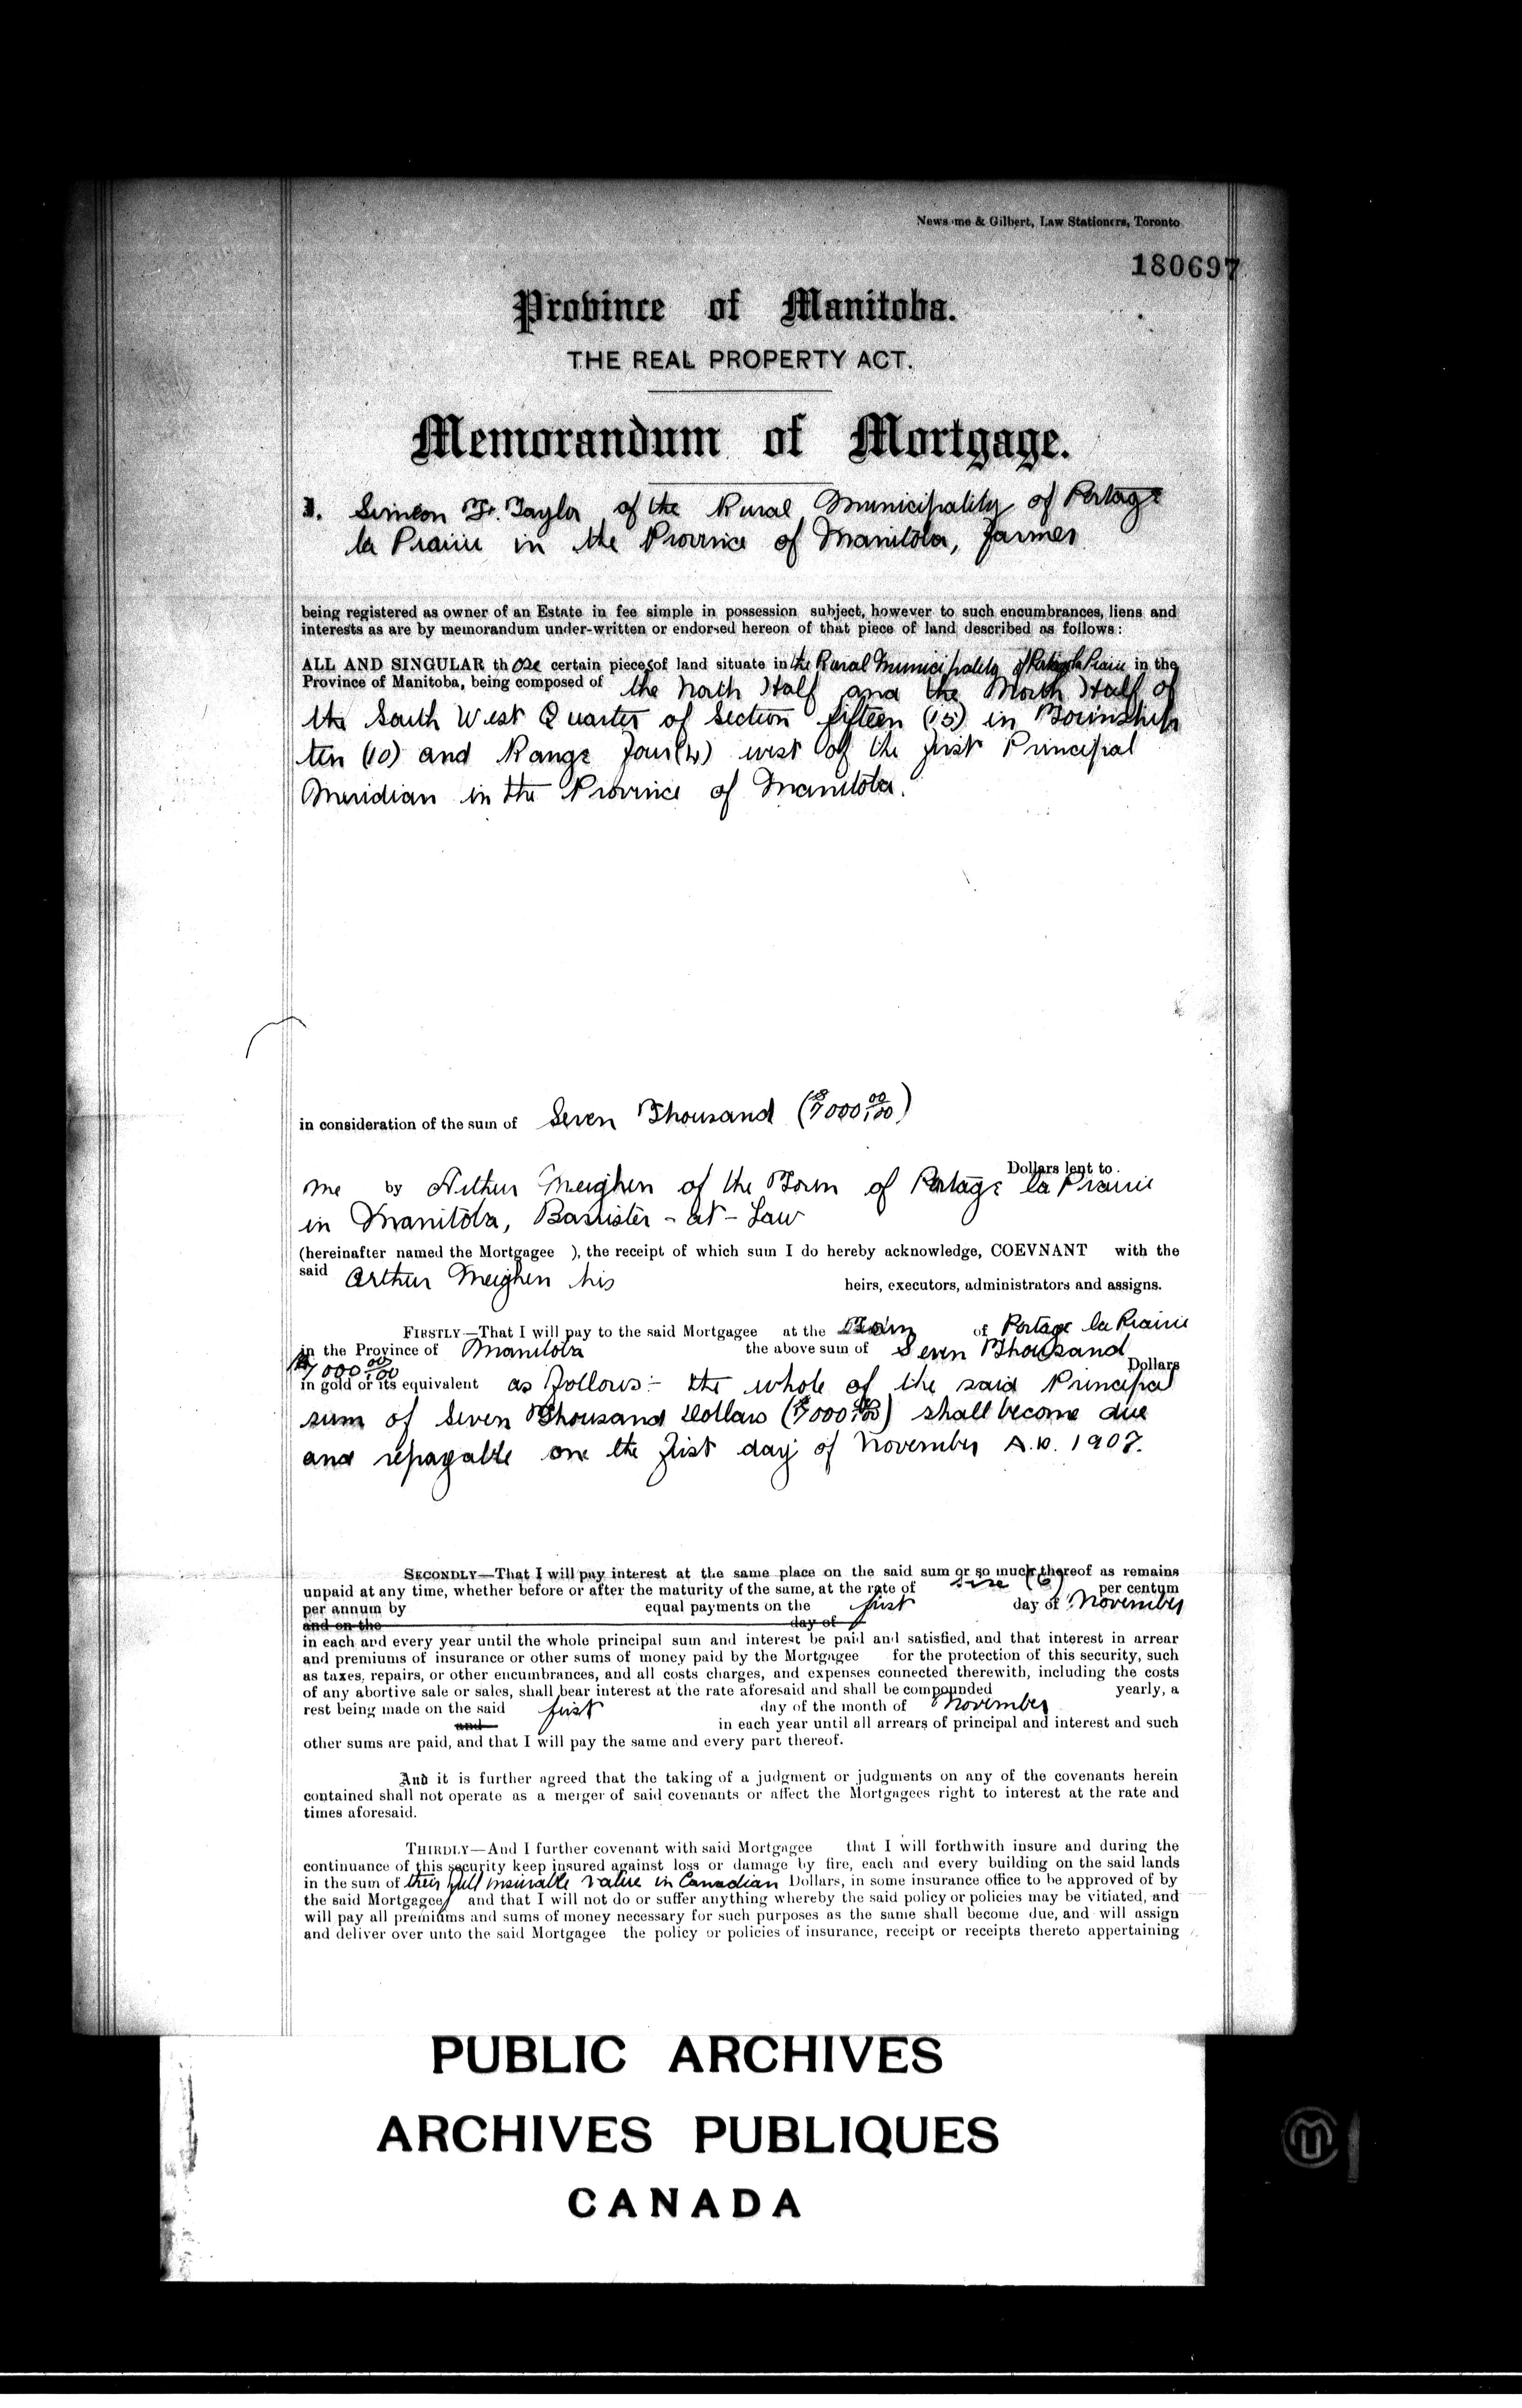 Newsome & Gilbert, Law Stationers, Toronto
180697
Province of Manitoba.
THE REAL PROPERTY ACT.
Memorandum of Mortgage.
I. Simeon F. Taylor of the Rural Municipality of Portage
la Prairie in the Province of Manitoba, Farmer
being registered as owner of an Estate in fee simple in possession subject, however to such encumbrances, liens and
interests as are by memorandum under-written or endorsed hereon of that piece of land described as follows:
ALL AND SINGULAR those certain pieces of land situate in the Rural Municipality of Portage la Prairie in the
Province of Manitoba, being composed of the North Half and the North Half of
the South West Quarter of Section fifteen (15) in Township
ten (10) and Range Four (4) west of the first Principal
Meridian in the Province of Manitoba.
in consideration of the sum of Seven Thousand ($7000 00/100)
Dollars lent to
me by Arthur Meighen of the Town of Portage la Prairie
in Manitoba, Barrister-at-Law
(hereinafter named the Mortgagee ), the receipt of which sum I do hereby acknowledge, COEVNANT with the
said Arthur Meighen his heirs, executors, administrators and assigns.
FIRSTLY—That I will pay to the said Mortgagee at the Town of Portage la Prairie
in the Province of Manitoba the above sum of Seven Thousand
$7000 00/100 Dollars
in gold or its equivalent as follows:- the whole of the said Principal
sum of Seven Thousand Dollars ($7000 00/100) shall become due
and repayable on the first day of November A.D. 1907.
SECONDLY—That I will pay interest at the same place on the said sum or so much thereof as remains
unpaid at any time, whether before or after the maturity of the same, at the rate of six (6) per centum
per annum by equal payments on the first day of November
and on the day of
in each and every year until the whole principal sum and interest be paid and satisfied, and that interest in arrear
and premiums of insurance or other sums of money paid by the Mortgagee for the protection of this security, such
as taxes, repairs, or other encumbrances, and all costs charges, and expenses connected therewith, including the costs
of any abortive sale or sales, shall bear interest at the rate aforesaid and shall be compounded yearly, a
rest being made on the said first day of the month of November
and in each year until all arrears of principal and interest and such
other sums are paid, and that I will pay the same and every part thereof.
And it is further agreed that the taking of a judgment or judgments on any of the covenants herein
contained shall not operate as a merger of said covenants or affect the Mortgagees right to interest at the rate and
times aforesaid.
THIRDLY—And I further covenant with said Mortgagee that I will forthwith insure and during the
continuance of this security keep insured against loss or damage by fire, each and every building on the said lands
in the sum of their full insurable value in Canadian Dollars, in some insurance office to be approved of by
the said Mortgagee and that I will not do or suffer anything whereby the said policy or policies may be vitiated, and
will pay all premiums and sums of money necessary for such purposes as the same shall become due, and will assign
and deliver over unto the said Mortgagee the policy or policies of insurance, receipt or receipts thereto appertaining
PUBLIC ARCHIVES
ARCHIVES PUBLIQUES
CANADA